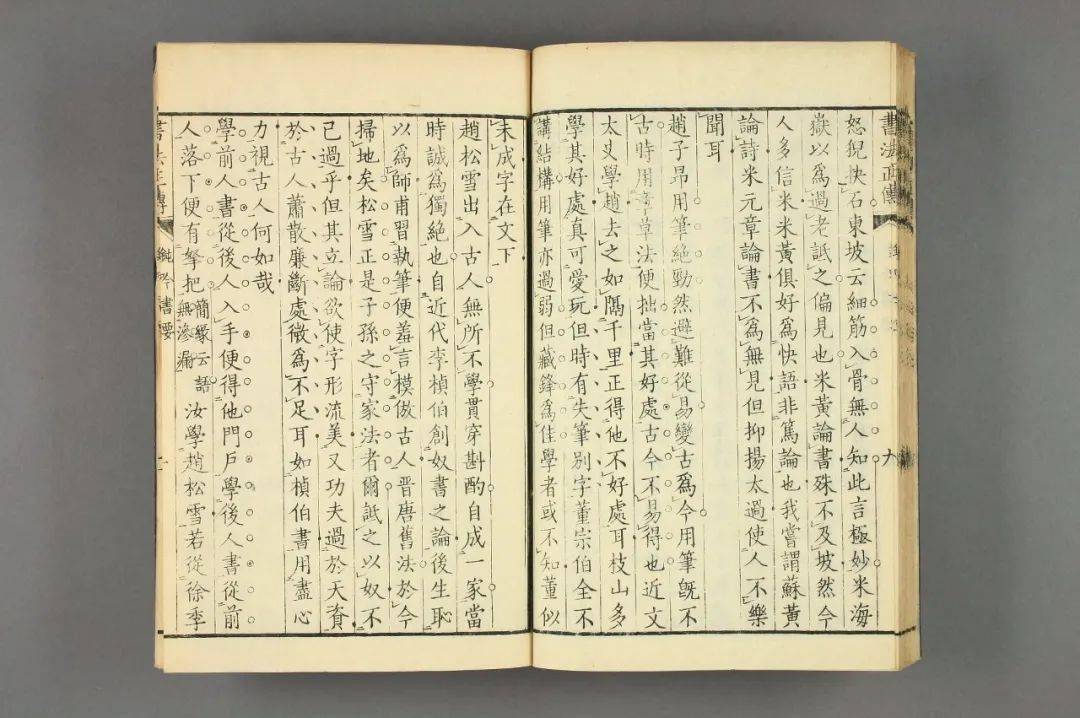 書法正傳
怒猊抉石東坡云細筋入骨無人知此言極妙米海
嶽以爲過老詆之偏見也米黃論書殊不及坡然今
人多信米米黃俱好爲快語非篤論也我嘗謂蘇黃
論詩米元章論書不爲無見但抑揚太過使人不樂
聞耳
趙子昂用筆絶勁然避難從易變古爲今用筆旣不
古時用章草法便拙當其好處古今不易得也近文
太史學趙去之如隔千里正得他不好處耳枝山多
學其好處真可愛玩但時有失筆別字董宗伯全不
講結構用筆亦過弱但藏鋒爲佳學者或不知董似
未成字在文下
趙松雪出入古人無所不學貫穿斟酌自成一家當
時誠爲獨絶也自近代李楨伯創奴書之論後生恥
以爲師甫習執筆便羞言模倣古人晉唐舊法於今
掃地矣松雪正是子孫之守家法者爾詆之以奴不
已過乎但其立論欲使字形流美又功夫過於天資
於古人蕭散廉斷處微爲不足耳如楨伯書用盡心
力視古人何如哉
學前人書從後人入手便得他門戶學後人書從前
人落下便有拏把簡緣云語無滲漏汝學趙松雪若從徐季
書法正傳 鈍吟書要